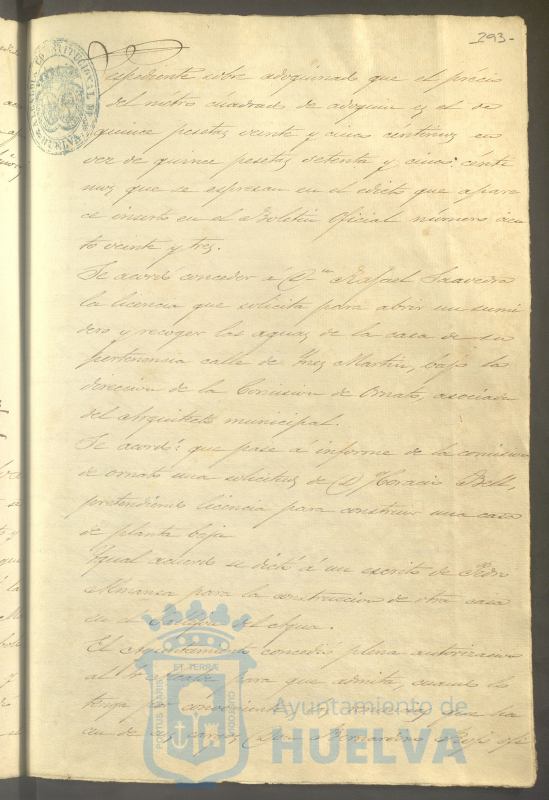 293-
Espediente sobre adoquinado que el precio
del métro cuadrado de adoquin es el de
quince pesetas veinte y cinco céntimos en
vez de quince pesetas setenta y cinco cénti
mos que se espresan en el edicto que apare
ce inserto en el Boletin Oficial número cien
to veinte y tres.
Se acordó conceder á Dn Rafael Saavedra
la licencia que solicita para abrir un sumi
dero y recoger las aguas de la casa de su
pertenencia calle de Ynes Martin, bajo la
direccion de la Comision de Ornato, asociada
del Arquitecto municipal.
Se acordó: que pase á informe de la comision
de ornato una solicitud de D Horacio Bell,
pretendiendo licencia para construir una casa
de planta baja
Ygual acuerdo se dictó á un escrito de Pedro
Almansa para la construccion de otra casa
en el Callejon del Agua.
El Ayuntamiento concedió plena autorizacion
al Sr Alcalde para que admita, cuando lo
tenga por conveniente, la que ha
ce de su cargo Don Bernardino
PORTUS MARIS
ET TERRÆ
CUSTODIA
Ayuntamiento de
HUELVA